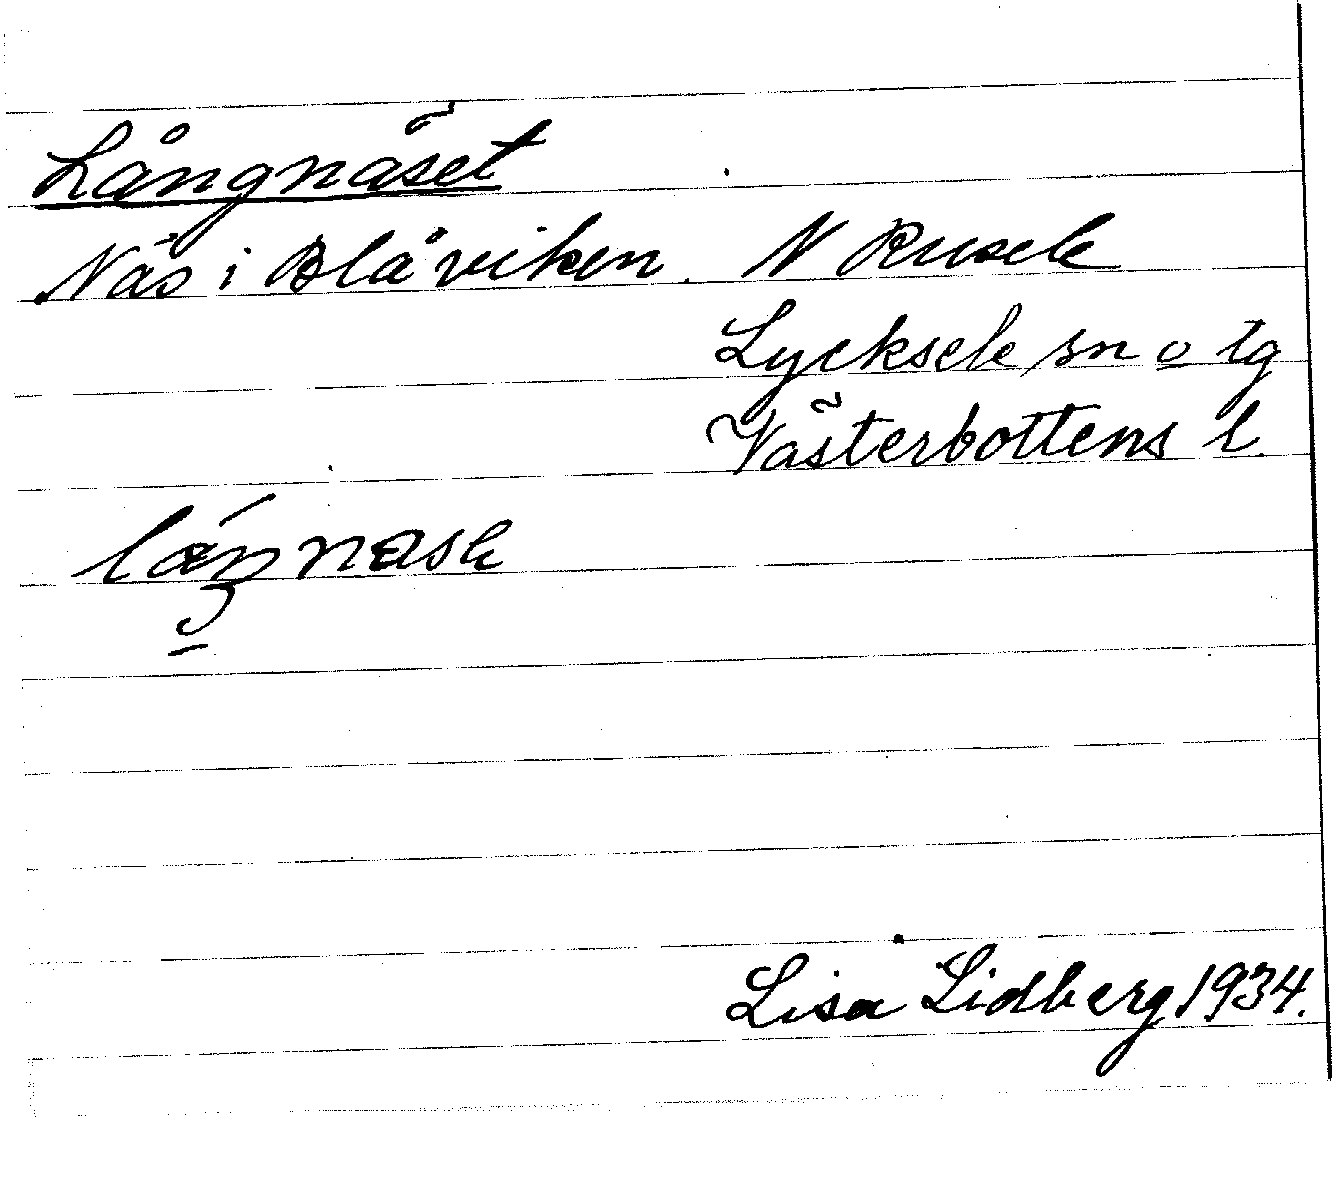 Långnäset
Näs i Blåviken. N Rusele
Lycksele sn o tg
Västerbottens l.
Lisa Lidberg 1934.